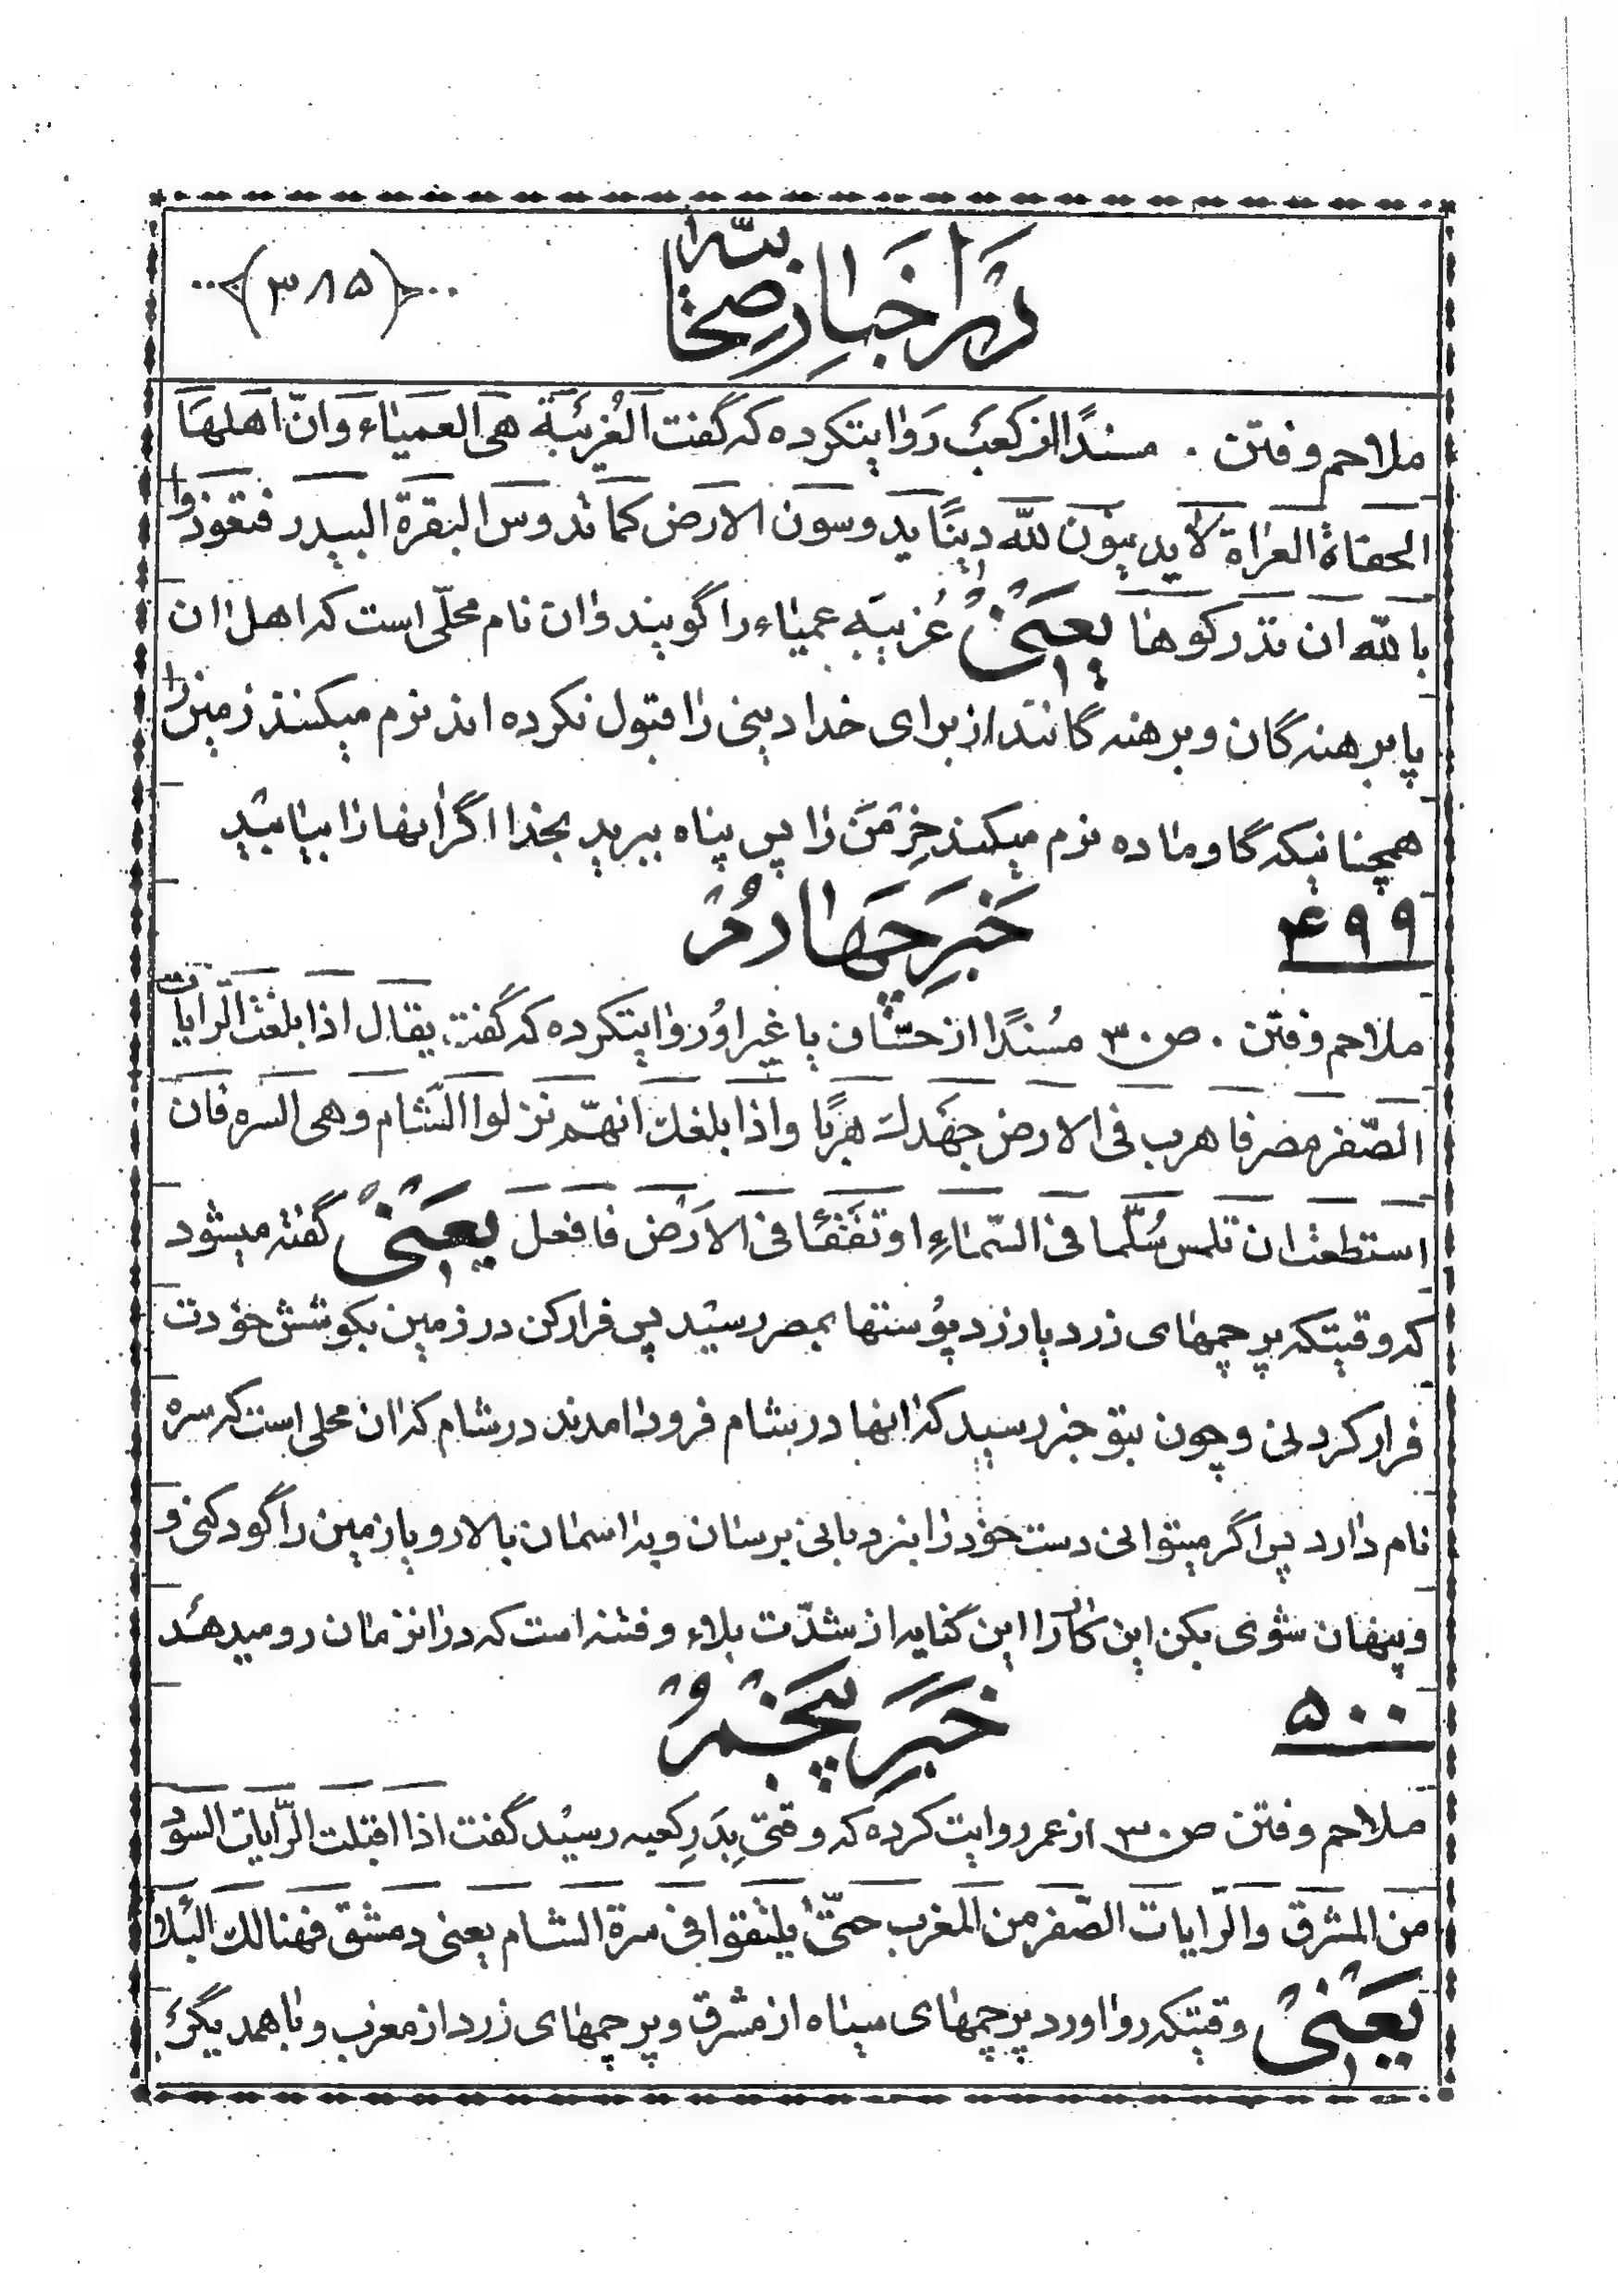 در اخبار صحابه
(۳۸۵)
ملاحم و فتن . مسندًا از کعب روایتکرده که گفت الغربیّة هی العمیاء وانّ اهلها
الحفاة العراة لا یدینون للّه دینًا یدوسون الارض کما تدوس البقرة البیدر فتعوذوا
باللّه ان تدرکوها یعنی غربیّه عمیاء را گویند وان نام محلّی است که اهل ان
پابرهنه گان وبرهنه گانند از برای خدا دینی را قبول نکرده اند نرم میکنند زمین را
همچنانیکه گاو ماده نرم میکند خرمن را پس پناه ببرید بخدا اگر انها را بیابید
۴۹۹
خبر چهارم
ملاحم وفتن . ص۳۰ مسندًا از حسّان یا غیر او روایتکرده که گفت یقال اذا بلغت الرّایات
الصّفر مصر فاهرب فی الارض جهدك هربًا واذا بلغك انهّم نزلوا الشّام وهی السره فان
استطعت ان تلمس سُلّما فی السّماءِ او تفقًا فی الارض فافعل یعنی گفته میشود
که وقتیکه پرچمهای زرد یا زرد پوستها بمصر رسید پس فرارکن در زمین بکوشش خودت
فرار کردنی وچون بتو خبر رسید که انها در شام فرود امدند در شام که ان محلی است که سره
نام دارد پس اگر میتوانی دست خود را بنردبانی برسان وبه اسمان بالا رو یا زمین را گود کنی و
وپنهان شوی بکن این کار را این کنایه از شدّت بلاء و فتنه است که در انزمان رو میدهد
۵۰۰
خبر پنجم
ملاحم وفتن ص۳۰ از عمر روایت کرده که وقتی بدَرِ کعبه رسید گفت اذا اقبلت الرّایات السود
من المشرق والرّایات الصّفر من المغرب حتّی یلتقوا فی سرة الشام یعنی دمشق فهنالك البلاء
یعنی وقتیکه رو اورد پرچمهای سیاه از مشرق وپرچمهای زرد از مغرب و با همدیگر